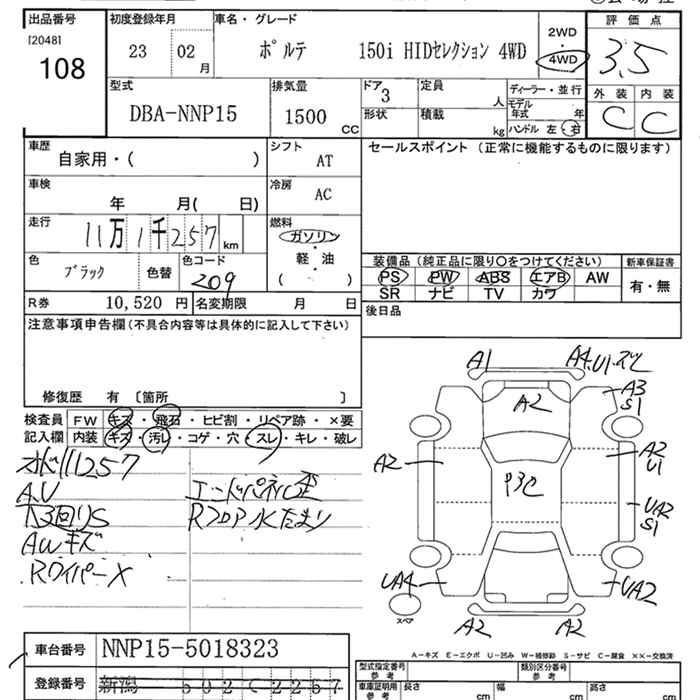 出品番号 初度登録年月 車名・グレード 評価点
[2048] 23 02 月 ポルテ 150i HIDセレクション 4WD 2WD・4WD 3.5
108
型式 排気量 ドア 3 定員 人 ディーラー・並行 外装 内装
DBA-NNP15 1500 CC 形状 積載 kg モデル年式 年 C C
ハンドル 左・右
車歴 シフト セールスポイント (正常に機能するものに限ります)
自家用・( ) AT
車検 冷房
年 月( 日) AC
走行 燃料
11万1千257 km ガソリン
軽・油
( )
色 色コード 装備品 (純正品に限り〇をつけてください) 新車保証書
ブラック 色替 209 PS PW ABS エアB AW 有・無
SR ナビ TV カワ
R券 10,520 円 名変期限 月 日 後日品
注意事項申告欄 (不具合内容等は具体的に記入して下さい)
修復歴 有 〔箇所 〕
検査員 FW キズ・飛石・ヒビ割・リペア跡・×要
記入欄 内装 キズ・汚レ・コゲ・穴・スレ・キレ・破レ
A.U
エンドパネル歪
下回りS
Rフロアー水たまり
AWキズ
Rワイパー×
A1 A4.U1.
A2 A3
S1
A2 A2
U1
UA2
S1
UA4 UA2
スペア
A2 A2
A-キズ E-エクボ U-凹み W-補修跡 S-サビ C-腐食 ××-交換済
車台番号 NNP15-5018323
登録番号 新潟 502 C 2257
型式指定番号 参考 類別区分番号 参考
車庫証明用 参考 長さ cm 幅 cm 高さ cm